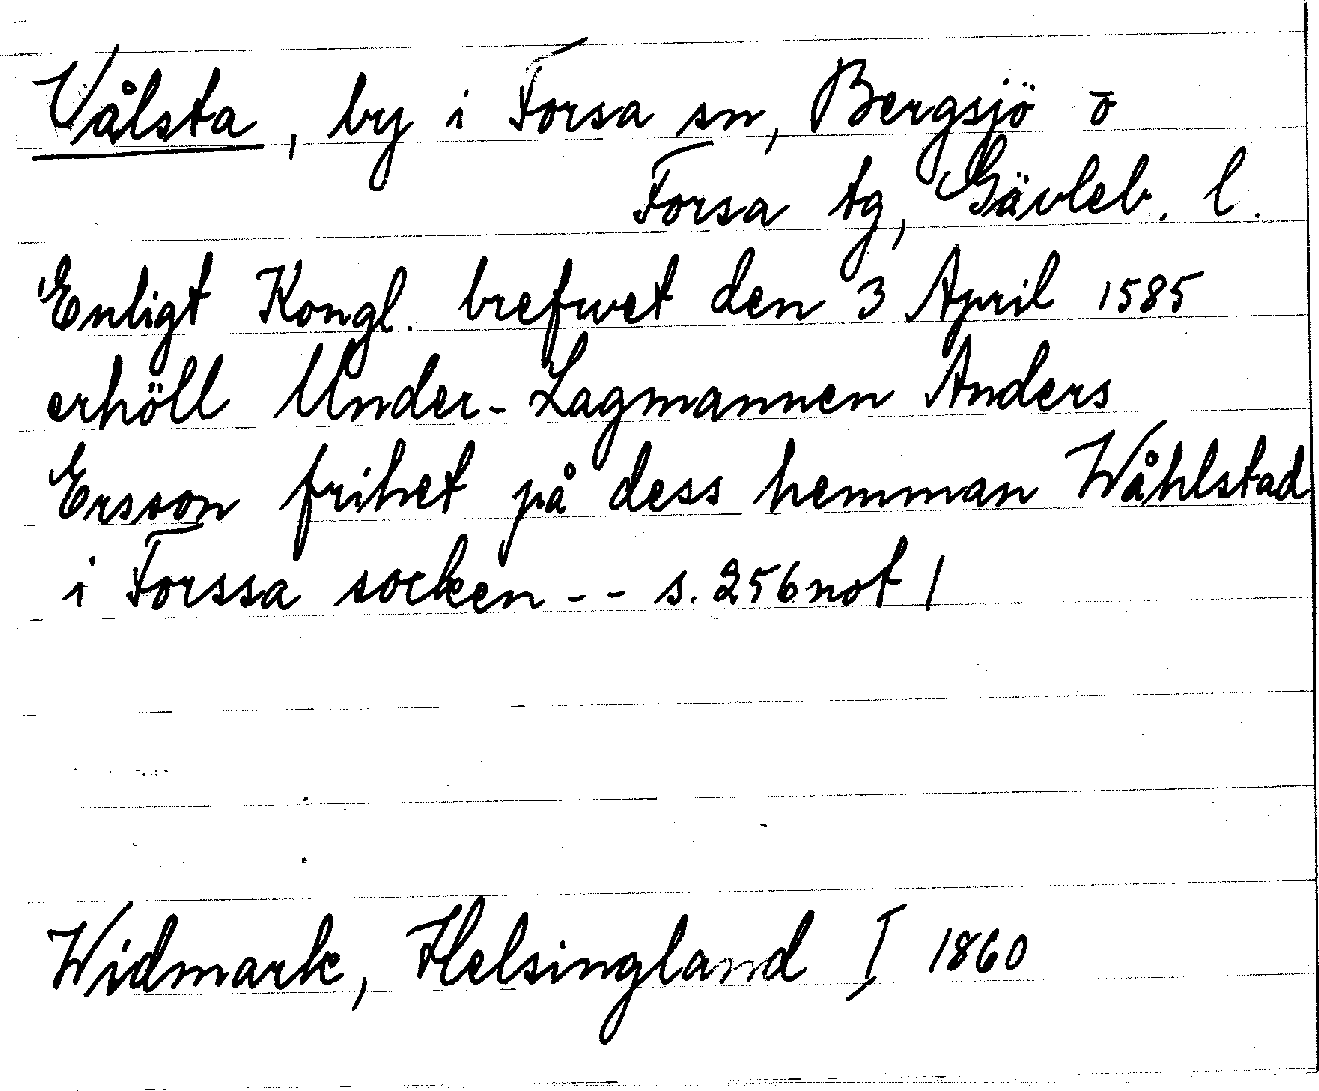 Vålsta, by i Forsa sn, Bergsjö o
Forsa tg, Gävleb. l.
Enligt Kongl. brefwet den 3 April 1585
erhöll Under-Lagmannen Anders
Ersson frihet på dess hemman Wåhlstad
i Forssa socken -- s. 256 not 1
Widmark, Helsingland I 1860